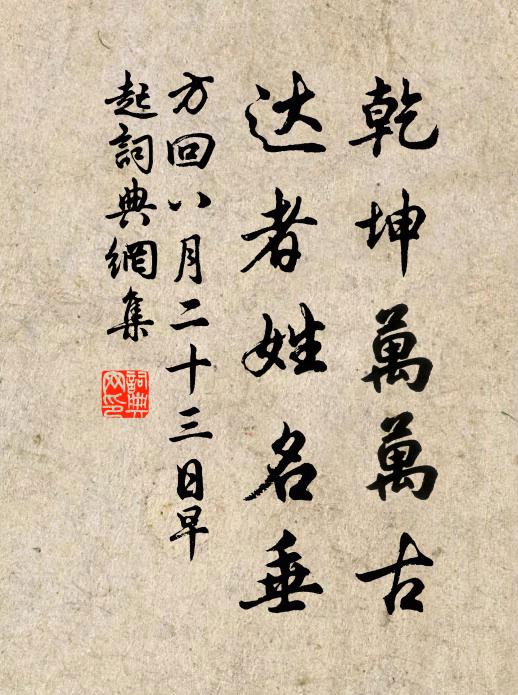 乾坤萬萬古
达者姓名垂
方回八月二十三日早
起詞典網集
詞典
网印